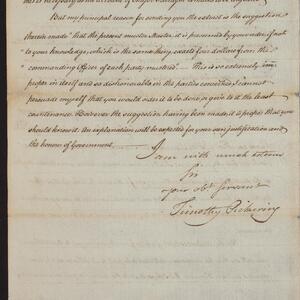 But my principal reason for sending you the extract is the suggestion
therein made that the person who thus it is presumed by your order if not
to your knowledge, which is the same thing, exacts four dollars from the
commanding Officer of each party mustered. This is so extremely im-
proper in itself and so dishonorable in the parties concerned I cannot
persuade myself that you would order it to be done, or give to it the least
countenance. But ever the suggestion having been made it is proper that you
should know it. An explanation will be expected for your own justification and
the honour of Government.
I am with much esteem
Sir
your obt. servant
Timothy Pickering